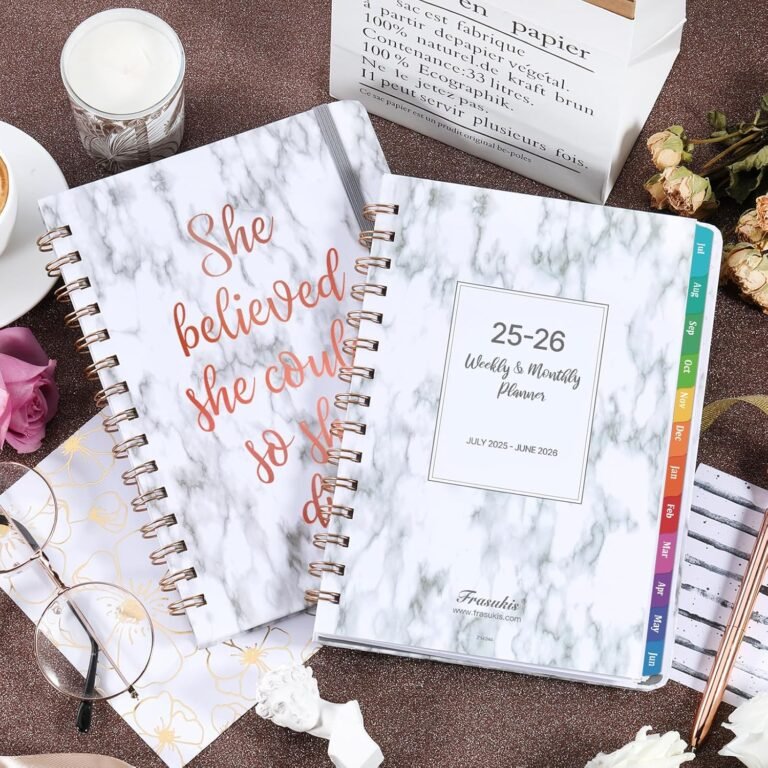 en papier
sac est fabrique
à partir depapier végétal.
100% naturel.de kraft brun
Contenance:33 litres.
100% Ecographik.
Ne le jetez pas.
Il peut servir plusieurs fois.
Ce sac papier est un prudit original be-poles
She
believed
she coul
so sh
di
25-26
Weekly & Monthly
Planner
JULY 2025 - JUNE 2026
Frasukis
www.frasukis.com
Jul
Aug
Sep
Oct
Nov
Dec
Jan
Feb
Mar
Apr
May
Jun